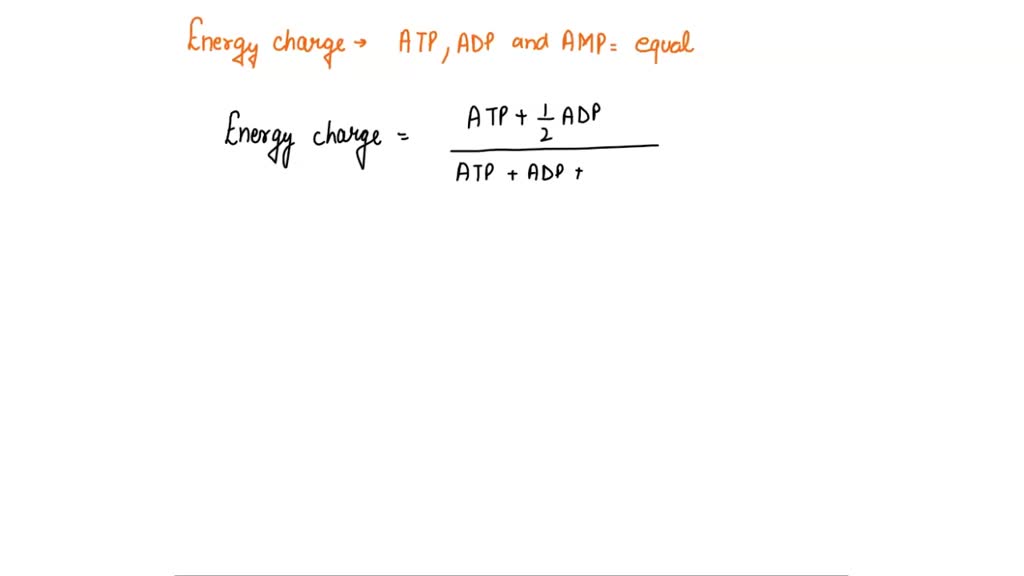 Energy charge → ATP, ADP and AMP = equal
Energy charge = ATP + 1/2 ADP
ATP + ADP +